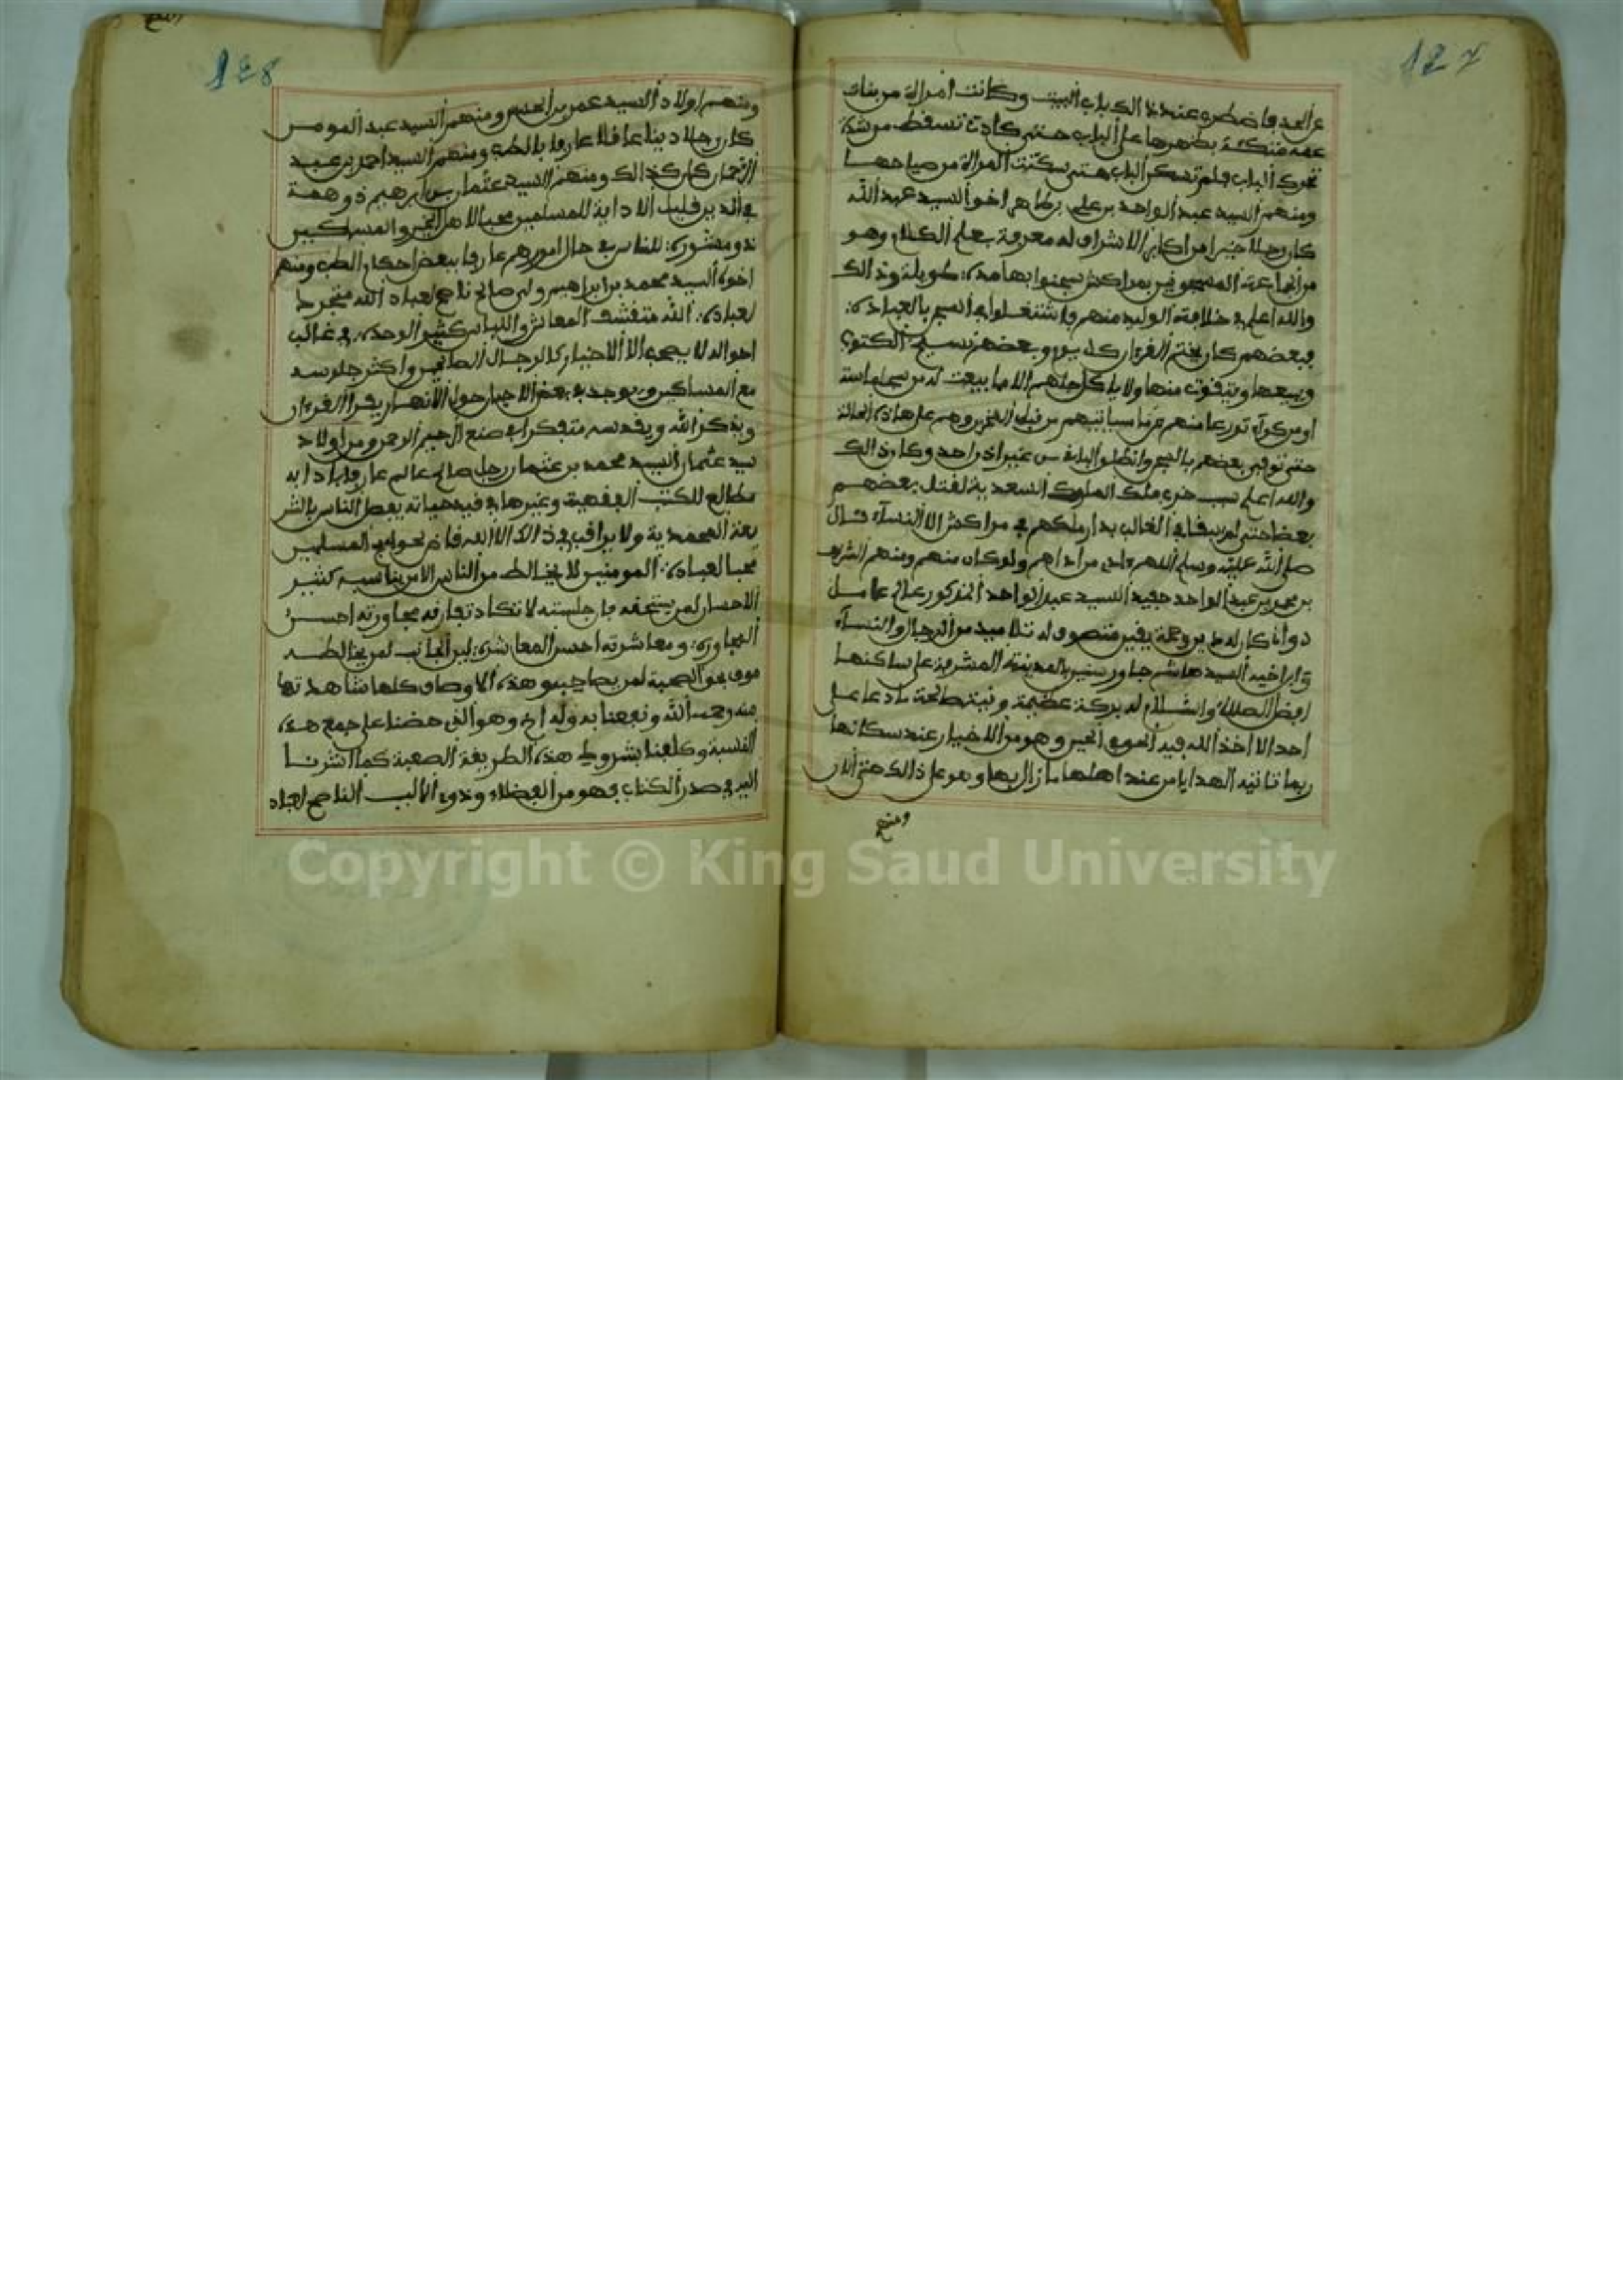 127
عن العد فاضطرب عند ذالك باب البيت وكانت امراة من بنات
عمه متكئة بظهرها على الباب حتى كادت تسقط من شدة
تحرك الباب فلم تسكن الباب حتى سكتت المراة من صياحها
ومنهم السيد عبد الواحد بن علي بن طاهر اخو السيد عبد الله
كان رجلا خيرا من اكابر الاشراف له معرفة بعلم الكلام وهو
من الجماعة المسجونين بمراكش سجنوا بها مدة طويلة وذالك
والله اعلم في خلافة الوليد منهم واشتغلوا في السجن بالعبادة
فبعضهم كان يختم القرءان كل يوم وبعضهم نسخ الكتب
ويبيعها ويتقوت منها ولا ياكل جلهم الا ما يبعث له من سجلماسة
او من كراء تورعا منهم عما سياتيهم من قبل المخزن وهم على هاذه الحالة
حتى توفي بعضهم بالسجن وانطلق الباقي من غير اذن احد وكان ذالك
والله اعلم سبب خرب ملك الملوك السعدية لقتل بعضهم
بعضا حتى لم يبق في الغالب بدار ملكهم في مراكش الا النساء قال
صلى الله عليه وسلم اللهم اذ من اذاهم ولو كان منهم ومنهم الشريف
بن محمد بن عبد الواحد حفيد السيد عبد الواحد المذكور عالم عامل
دواما كان له دين وعمة يقين متصوف له تلاميد من الرجال والنساء
وابن اخيه السيد هاشم جاور سنين بالمدينة المشرفة على ساكنها
افضل الصلاة والسلام له بركة عظيمة ونية صالحة ما دعا على
احد الا اخذ الله فيه الحق الخير وهو من الاخيار عند سكانها
ربما تاتيه الهدايا من عند اهلها ما زال بها وهو على ذالك حتى الان
ومنهم
128
ومنهم اولاد السيد عمر بن الحسن ومنهم السيد عبد المومن
كان رجلا دينا عاقلا عارفا بالطب ومنهم السيد احمد بن عبد
الرحمان كان كذالك ومنهم السيد عثمان بن ابرهيم ذو همة
في الدين قليل الاداية للمسلمين محبا لاهل الخير والمساكين
ذو مشورة للناس في حال امورهم عارفا ببعض احكام الطب ومنهم
اخوه السيد محمد بن ابراهيم ولي صالح ناصح لعباد الله متجرد
لعبادة الله متقشف المعاش واللباس كثير الوحدة في غالب
احواله لا يصحب الا الاخيار كالرجال الصالحين واكثر جلوسه
مع المساكين ويوجد في بعض الاحيان حول الانهار يقرأ القرءان
ويذكر الله ويقدسه متفكرا في صنع الرحيم الرحمن ومن اولاد
سيد عثمان السيد محمد بن عثمان رجل صالح عالم عارف بادابه
مطالع للكتب الفقهية وغيرها في قيد حياته يعض الناس بالشر
يعة المحمدية ولا يراقب في ذالك الا الله قاض لحوايج المسلمين
محبا لعبادة المومنين لا يخالط من الناس الا من يناسبه كثير
الاحسان لمن يتحفه فان جلسته لا تكاد تفارقه مجاورته احسن
المجاورة ومعاشرته احسن المعاشرة لين الجانب لمن يخالطه
موف بحق الصحبة لمن يصاحبه وهذه الاوصاف كلها شاهدتها
منه رحمه الله ونفعنا به وله اخ وهو الذي حضنا على جمع هذه
النسبة وكلفنا بشروط هذه الطريقة الصعبة كما اشرنا
اليه في صدر الكتاب فهو من الفضلاء وذوي الالباب الناصح لعباد
Copyright © King Saud University